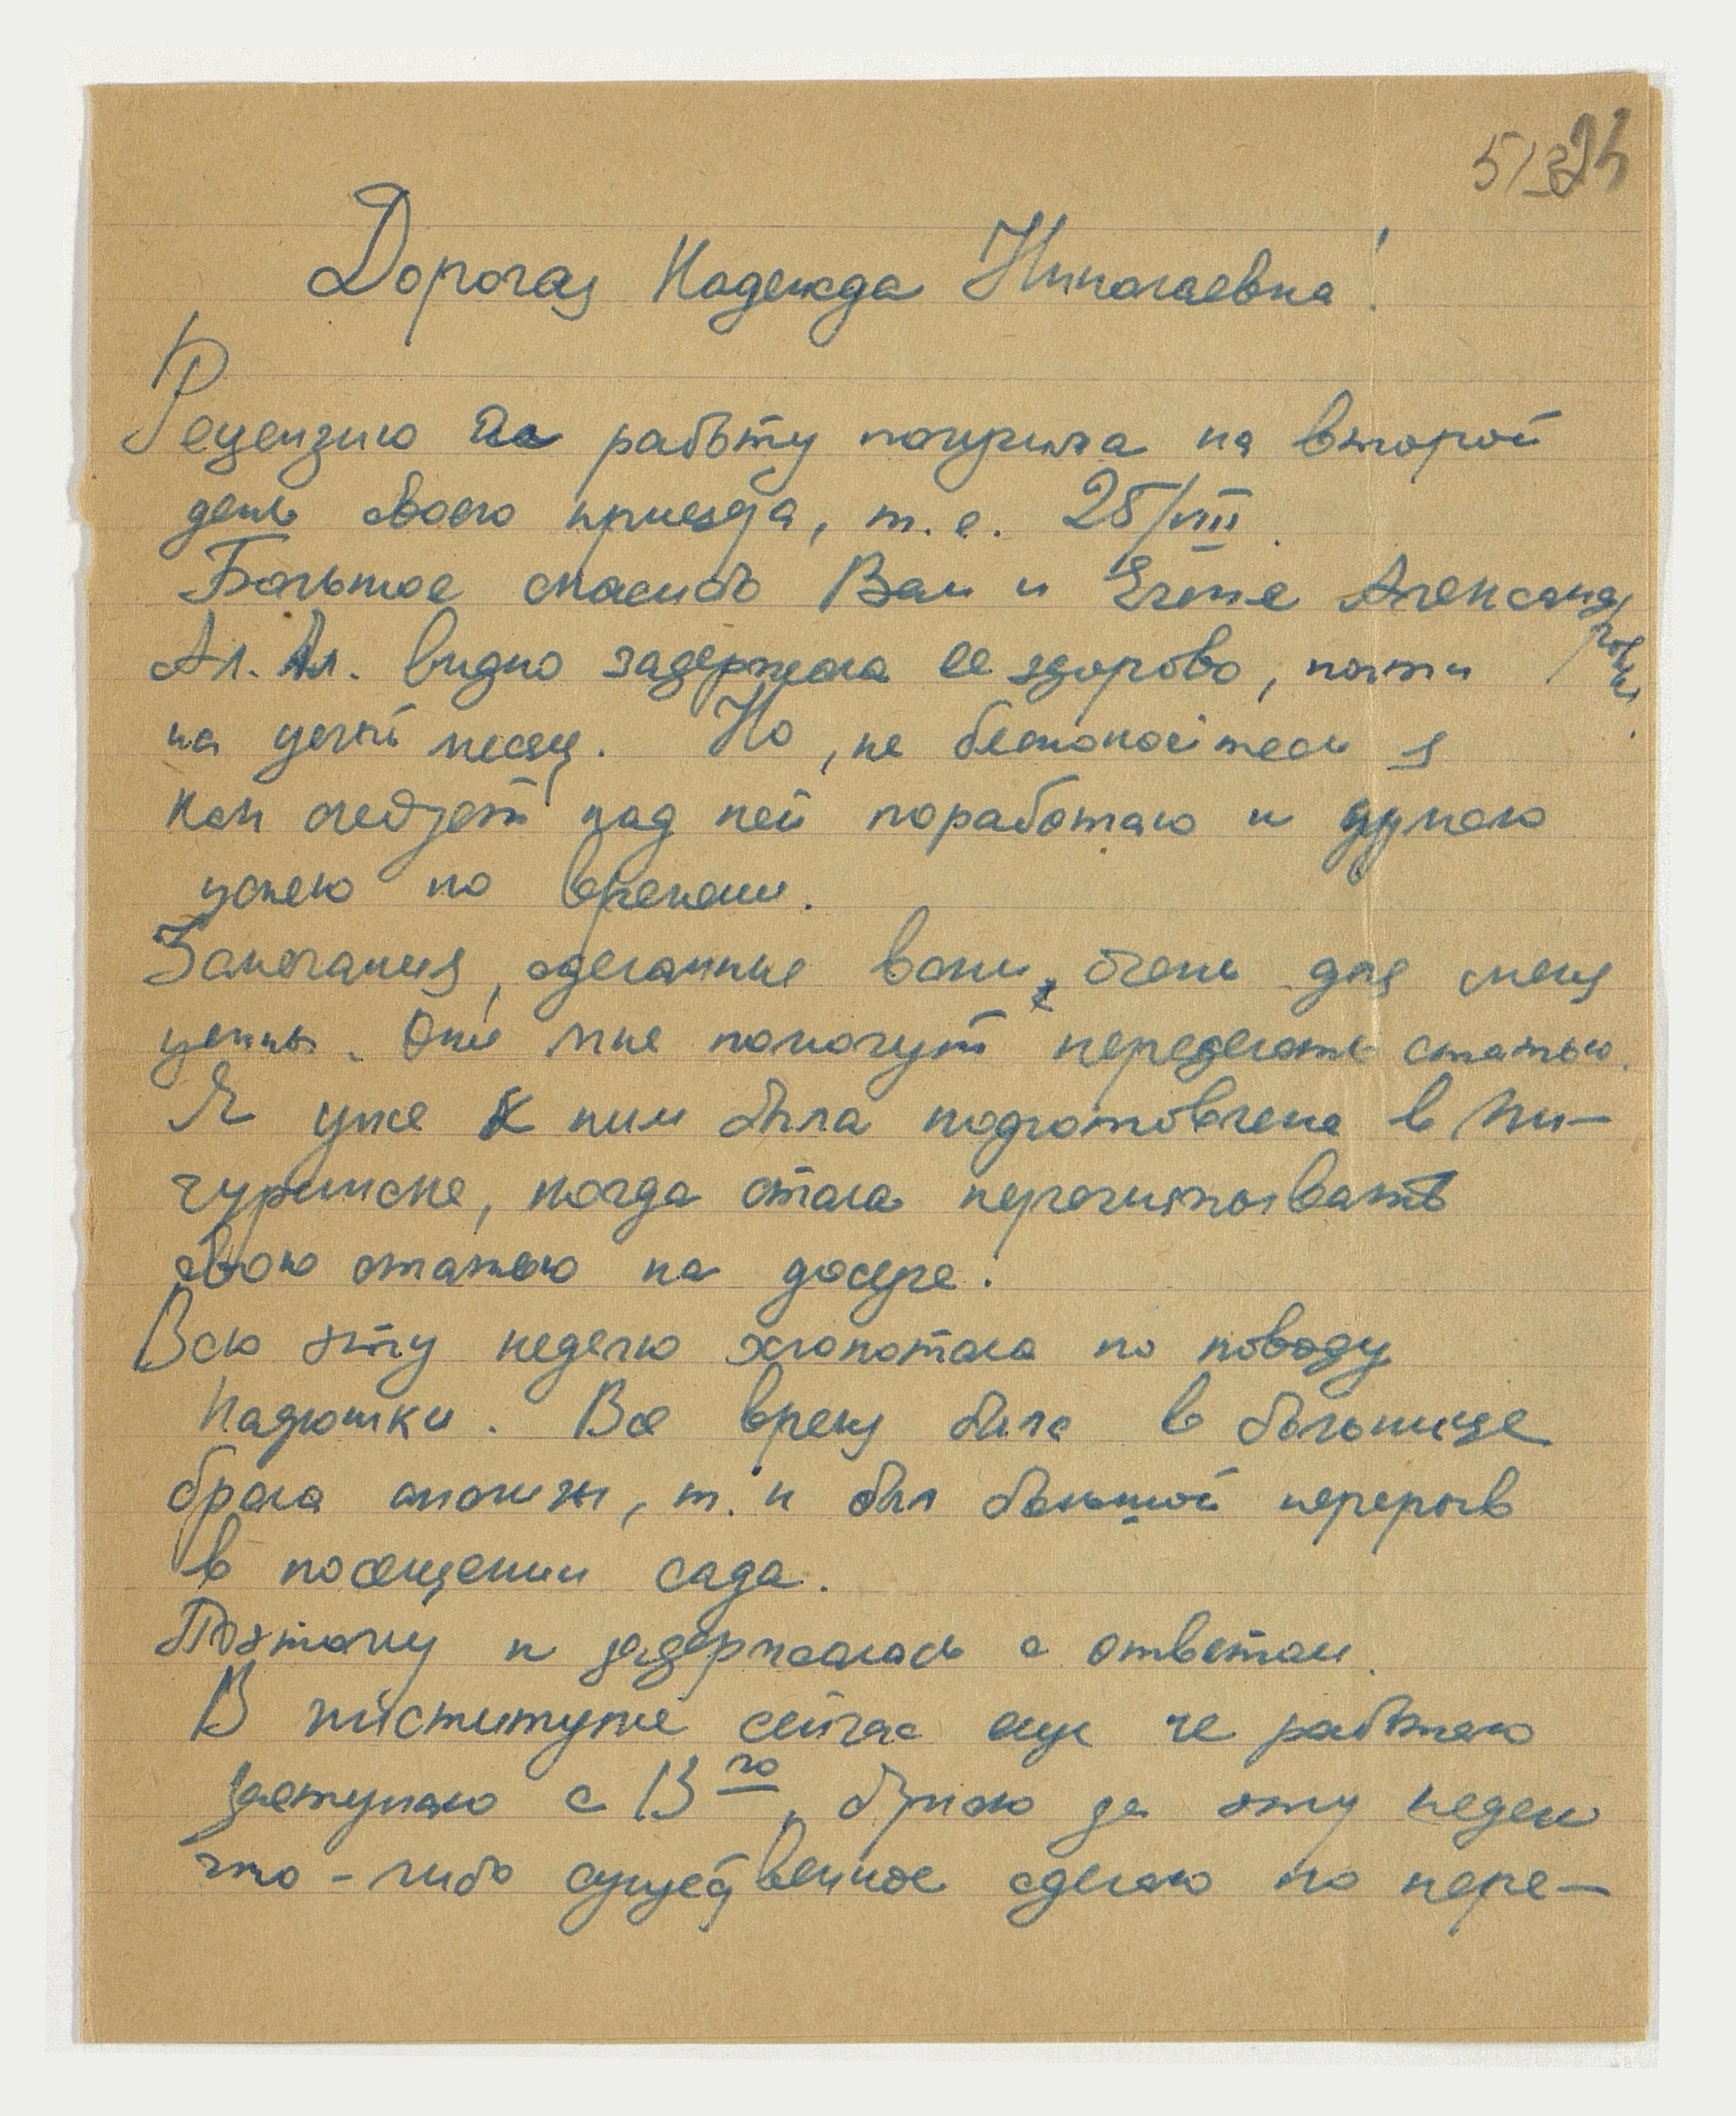 Дорогая Надежда Николаевна!
Рецензию на работу получила на второй
день своего приезда, т.е. 25/VIII.
Большое спасибо Вам и Елене Александ
ровне.
Ал. Ал. видно задержала ее здорово, почти
на целый месяц. Но, не беспокойтесь я
как следует над ней поработаю и думаю
успею по времени.
Замечания, сделанные вами, очень для меня
ценны. Они мне помогут переделать статью.
Я уже к ним была подготовлена в Ми-
чуринске, когда стала перечитывать
свою статью на досуге.
Всю эту неделю хлопотала по поводу
Надюшки. Все время была в больнице
брала анализы, т.к был большой перерыв
в посещении сада.
Поэтому и задержалась с ответом.
В институте сейчас еще не работаю
заступаю с 13го, думаю за эту неделю
что-либо существенное сделаю по пере-